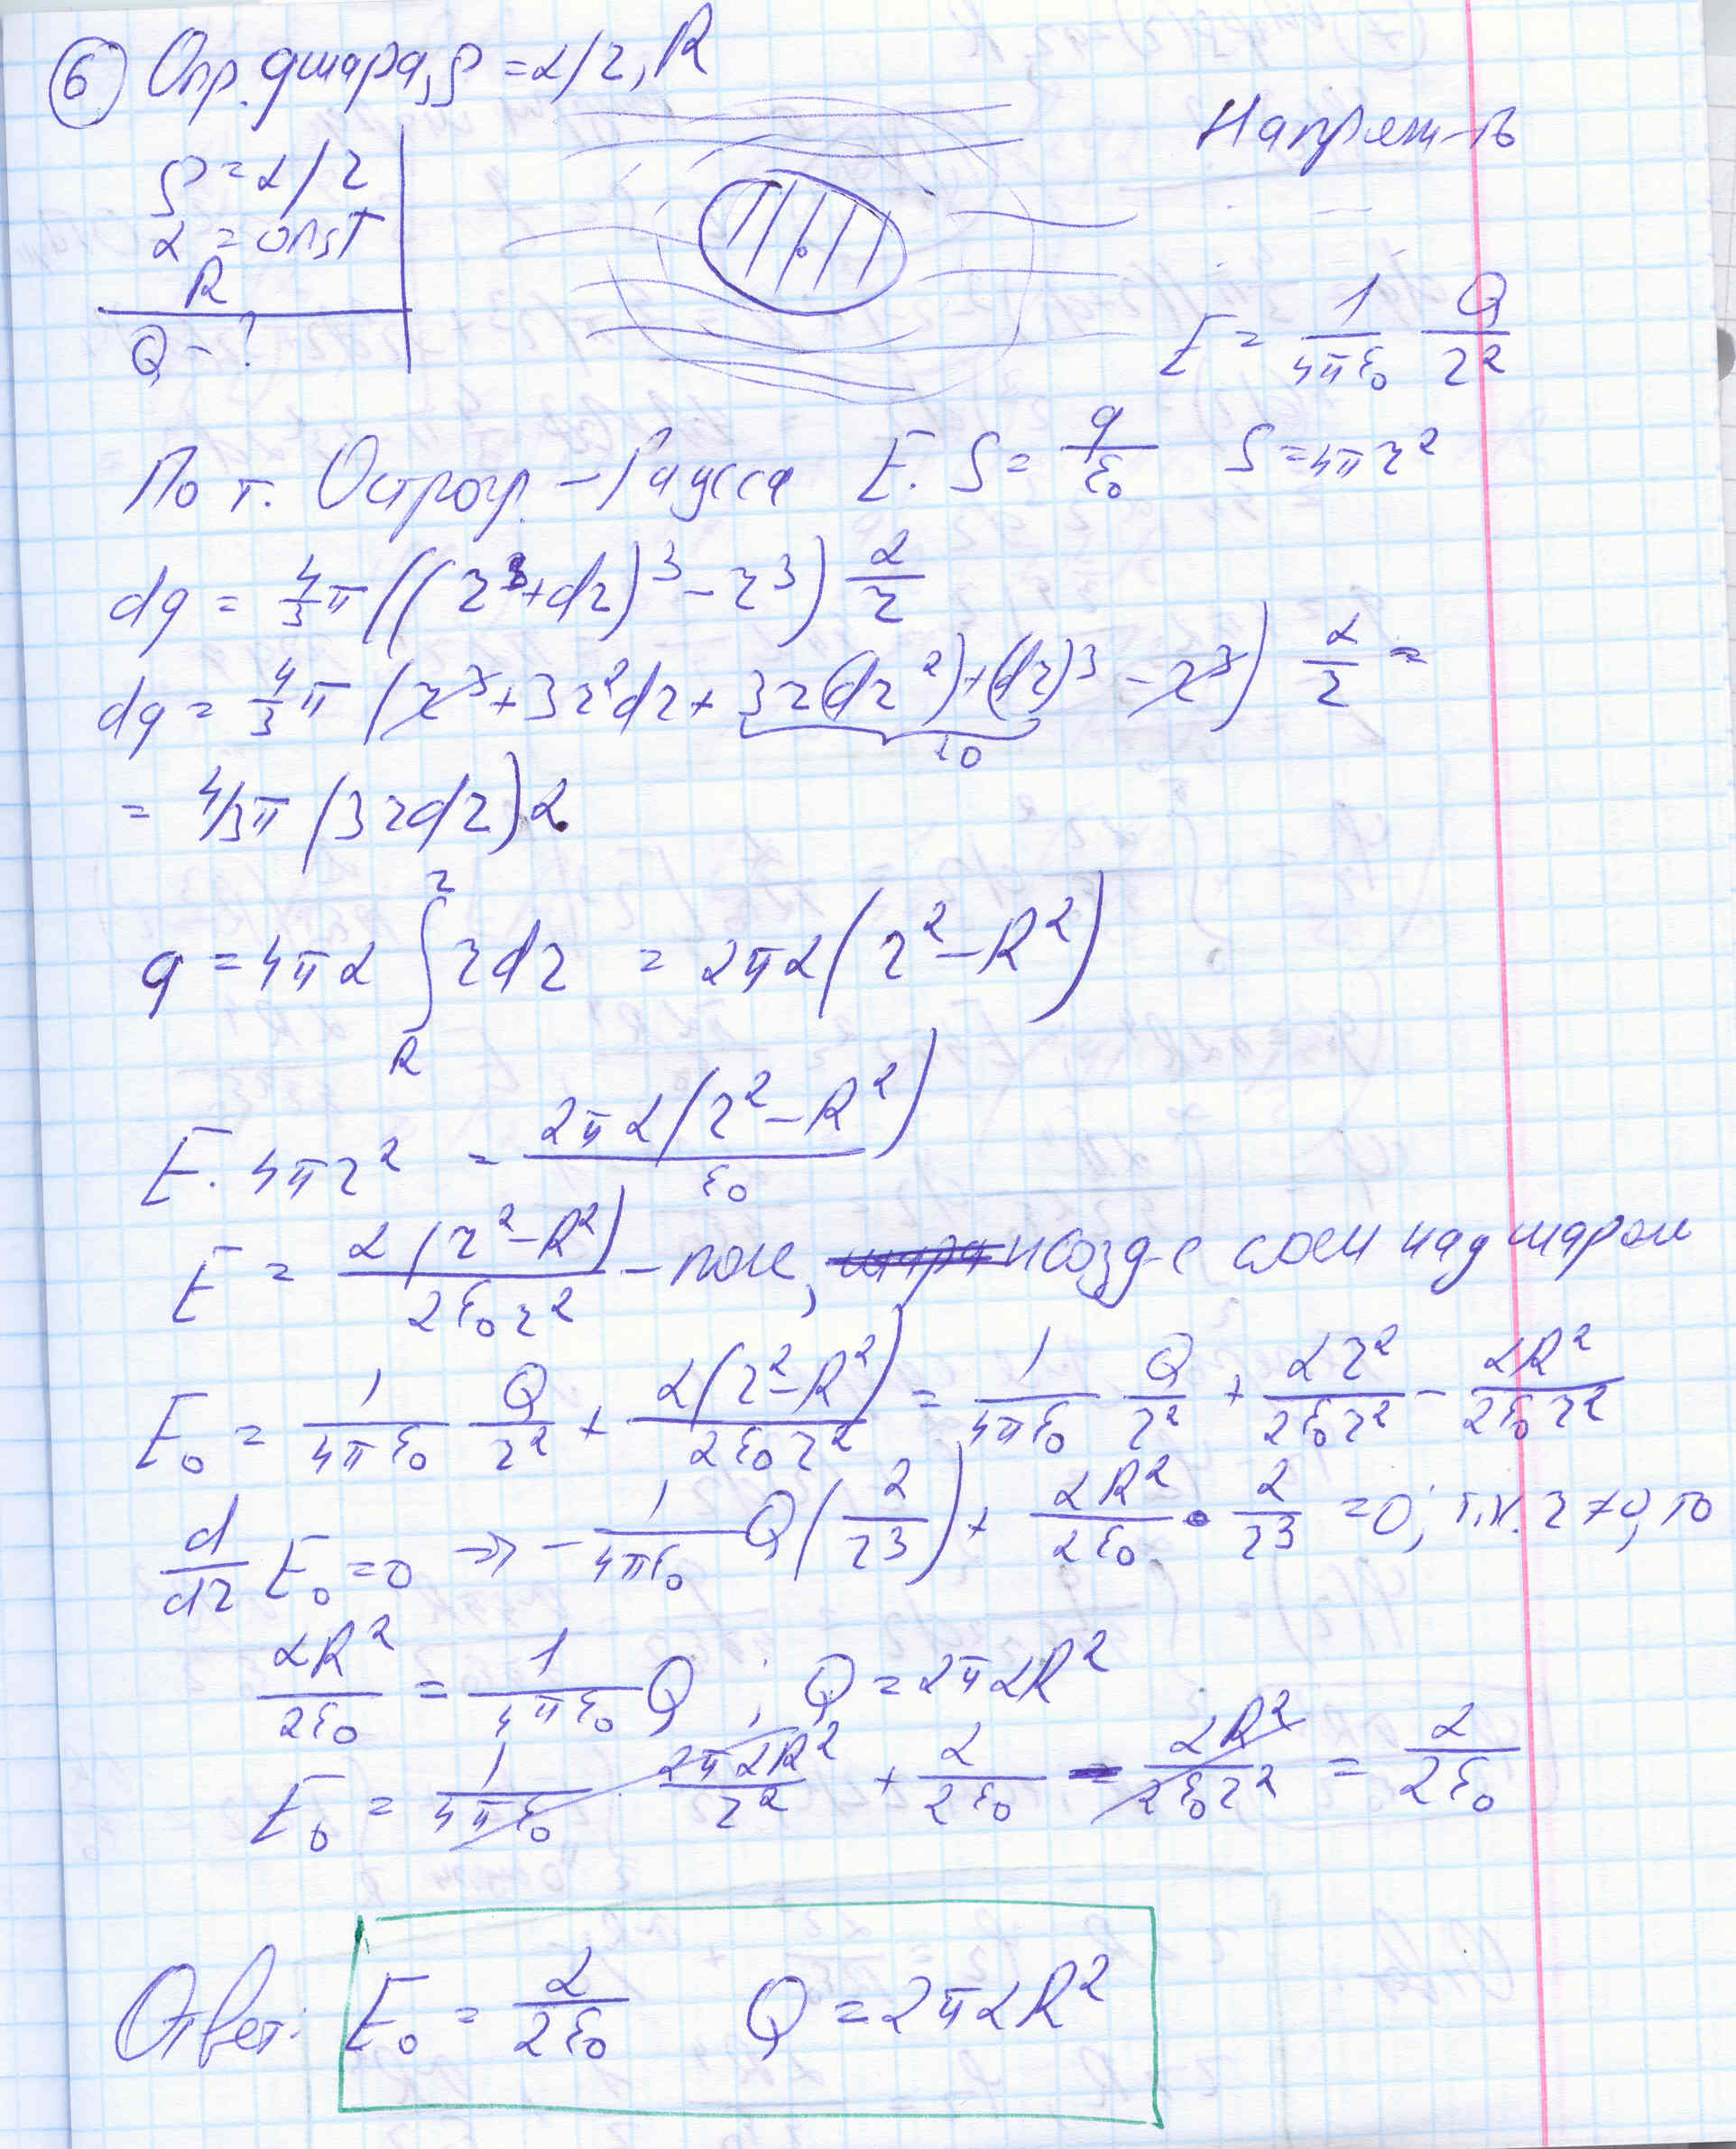 ⑥ Опр. q шара, ρ = α/r, R
ρ = α/r
α = const
R
Q - ?
Напряж-ть
E = 1/(4πε₀) Q/r²
По т. Острогр. - Гаусса E · S = q/ε₀ S = 4πr²
dq = 4/3 π ((r + dr)³ - r³) α/r
dq = 4/3 π (r³ + 3r²dr + 3r(dr²) + (dr)³ - r³) α/r =
≈0
= 4/3 π (3rdr) α
q = 4πα ∫_R^r rdr = 2πα (r² - R²)
E · 4πr² = 2πα(r² - R²)/ε₀
E = α(r² - R²)/(2ε₀r²) - поле, созд-е слоем над шаром
E₀ = 1/(4πε₀) Q/r² + α(r² - R²)/(2ε₀r²) = 1/(4πε₀) Q/r² + αr²/(2ε₀r²) - αR²/(2ε₀r²)
d/dr E₀ = 0 => - 1/(4πε₀) Q (2/r³) + αR²/(2ε₀) · 2/r³ = 0; т.к. r ≠ 0, то
αR²/(2ε₀) = 1/(4πε₀) Q ; Q = 2παR²
E₀ = 1/(4πε₀) 2παR²/r² + α/(2ε₀) - αR²/(2ε₀r²) = α/(2ε₀)
Ответ: E₀ = α/(2ε₀) Q = 2παR²